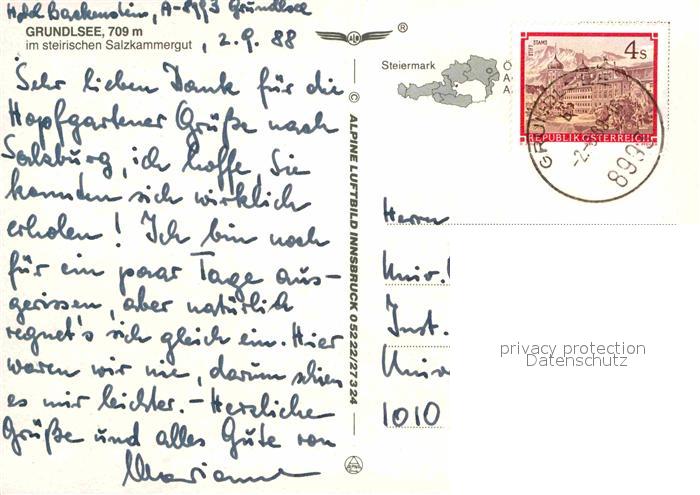 Hotel Backenstein, A-8993 Grundlsee
GRUNDLSEE, 709 m
im steirischen Salzkammergut
, 2.9.88
Sehr lieben Dank für die
Hopfgartener Grüße nach
Salzburg, ich hoffe, Sie
konnten sich wirklich
erholen! Ich bin noch
für ein paar Tage aus-
gerissen, aber natürlich
regnet's sich gleich ein. Hier
waren wir nie, darum schien
es mir leichter. – Herzliche
Grüße und alles Gute von
Marianne
© ALPINE LUFTBILD INNSBRUCK 05222/27324
ALB ®
Steiermark
Ö
A-
A.
STIFT STAMS
4 S
REPUBLIK ÖSTERREICH
8993
Herrn
Univ.
Inst.
Univ
1010
privacy protection
Datenschutz